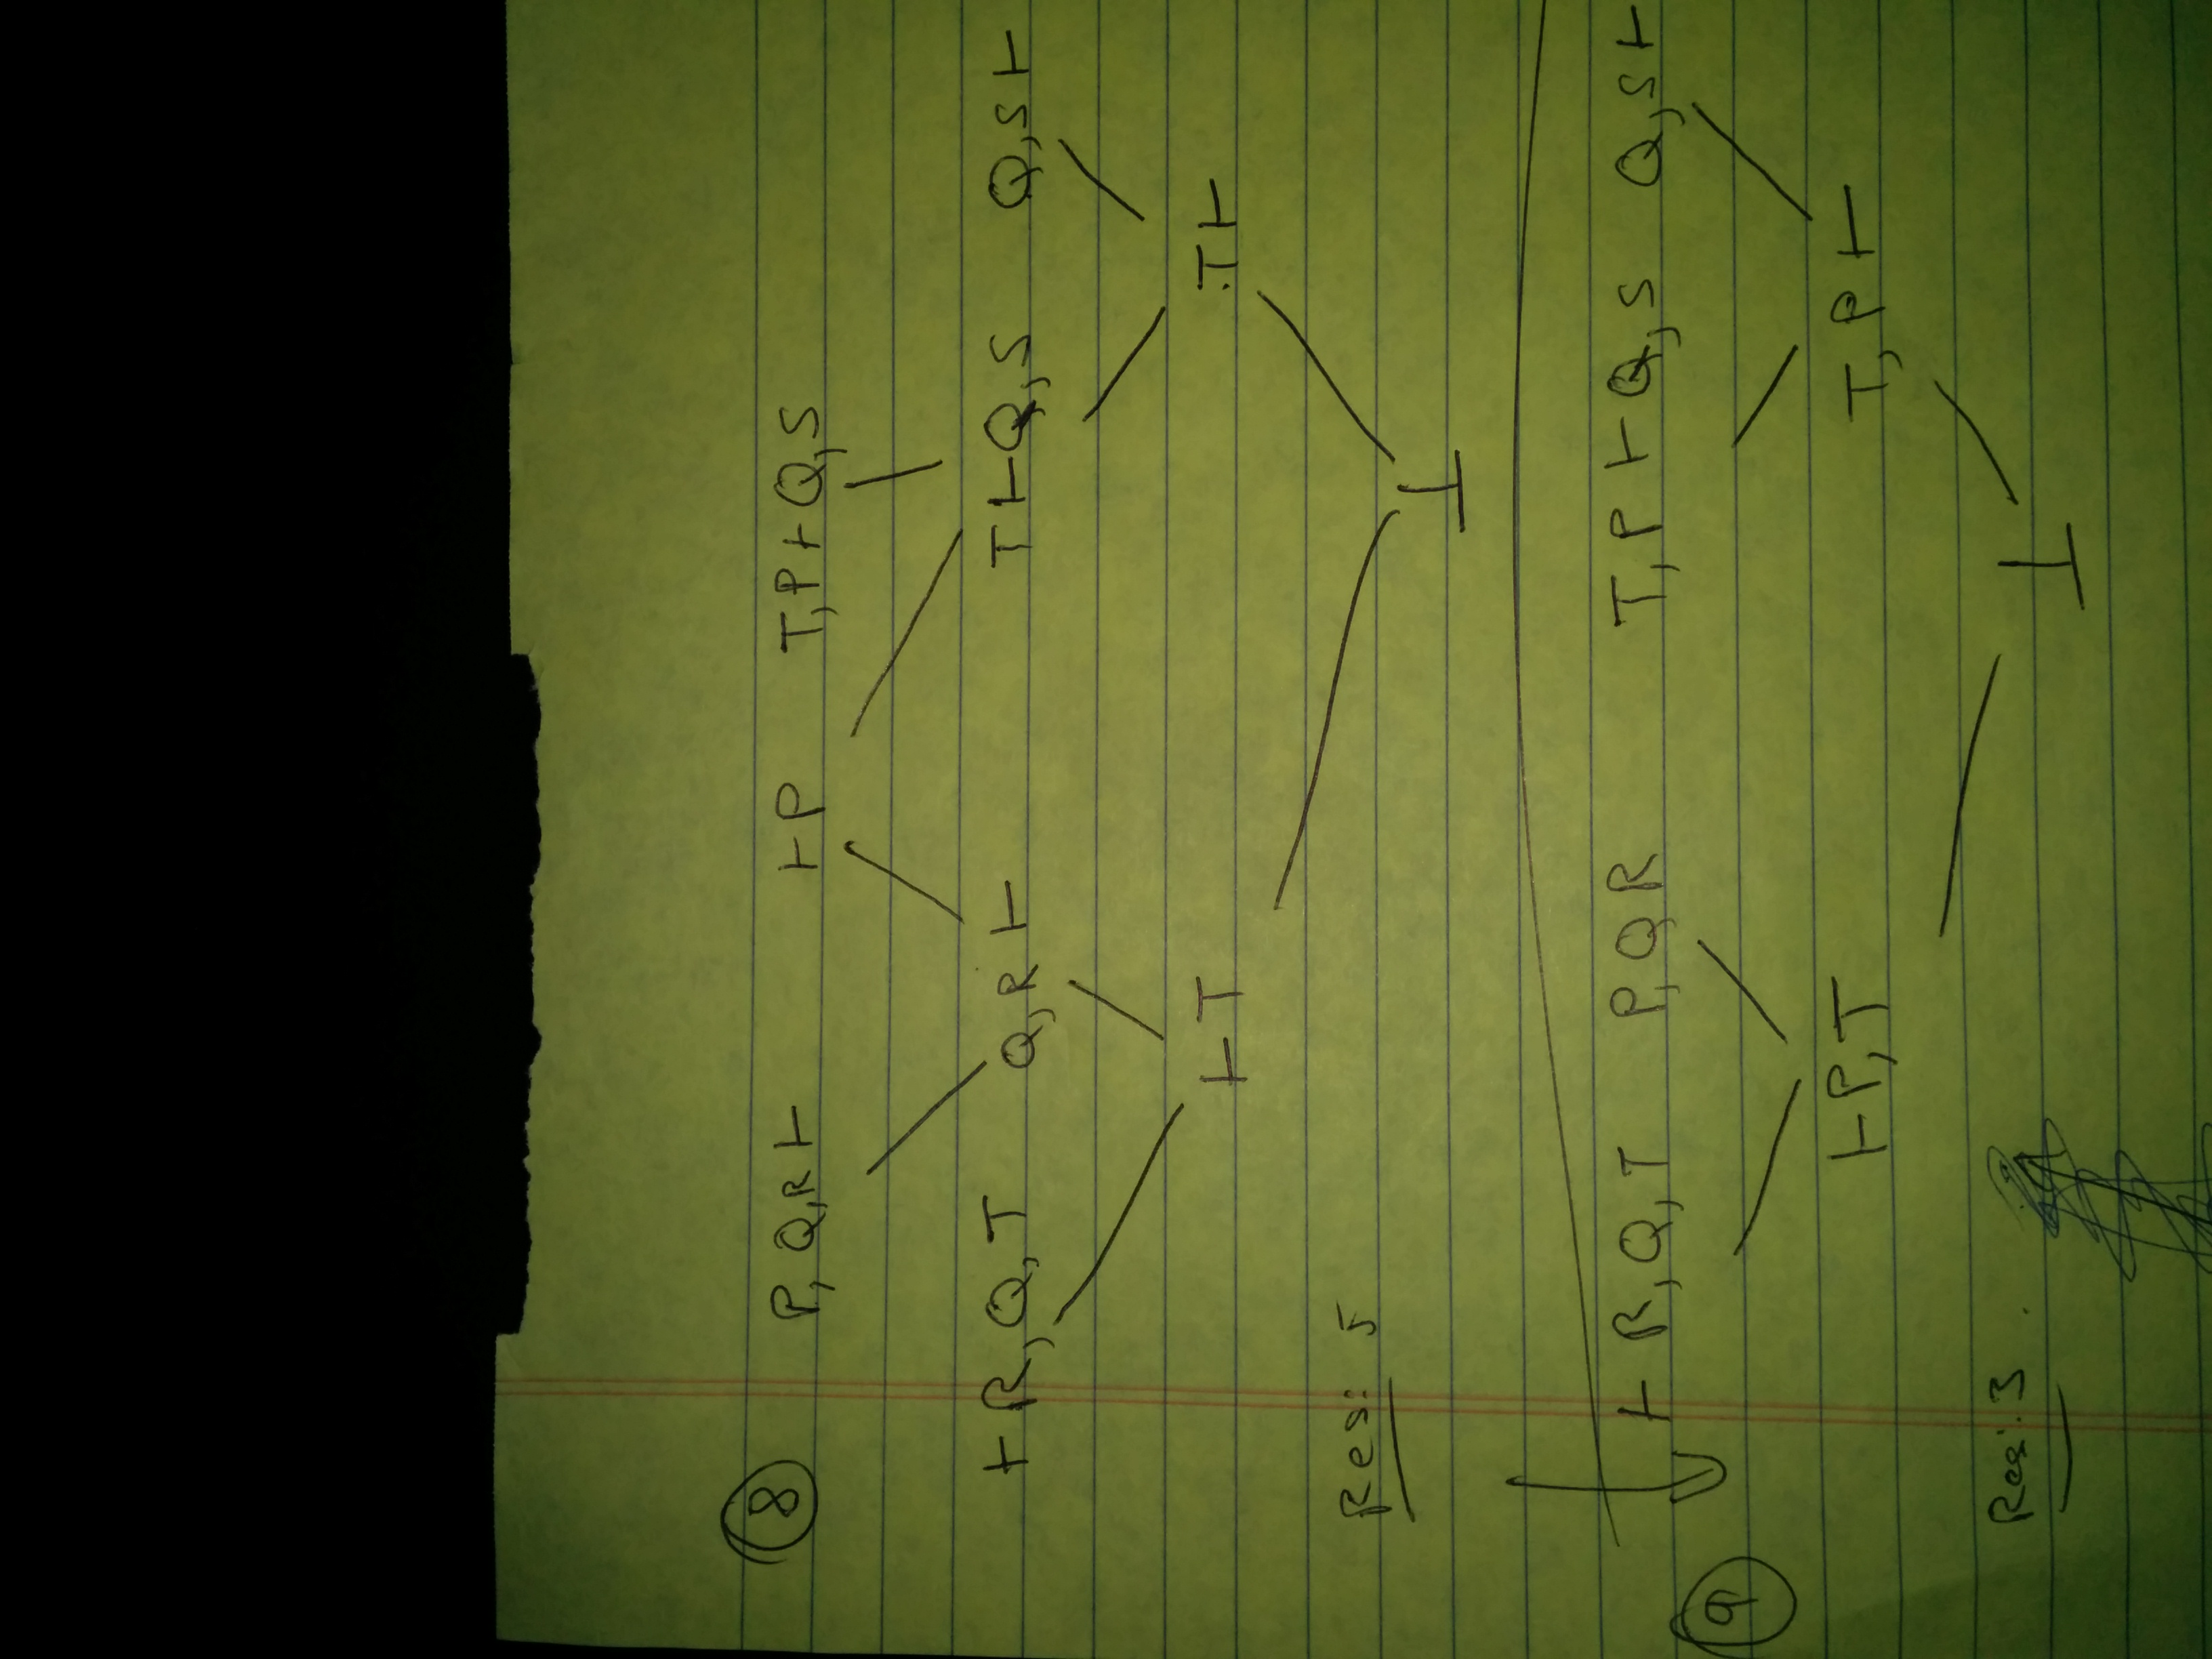 8
P,Q,R ⊢ ⊢ P T,P ⊢ Q,S
⊢ R,Q,T Q,R ⊢ T ⊢ Q,S Q,S ⊢
⊢ T T ⊢
⊥
Res: 5
9
⊢ R,Q,T P,Q R T,P ⊢ Q,S Q,S ⊢
⊢ P,T T,P ⊢
⊥
Res: 3